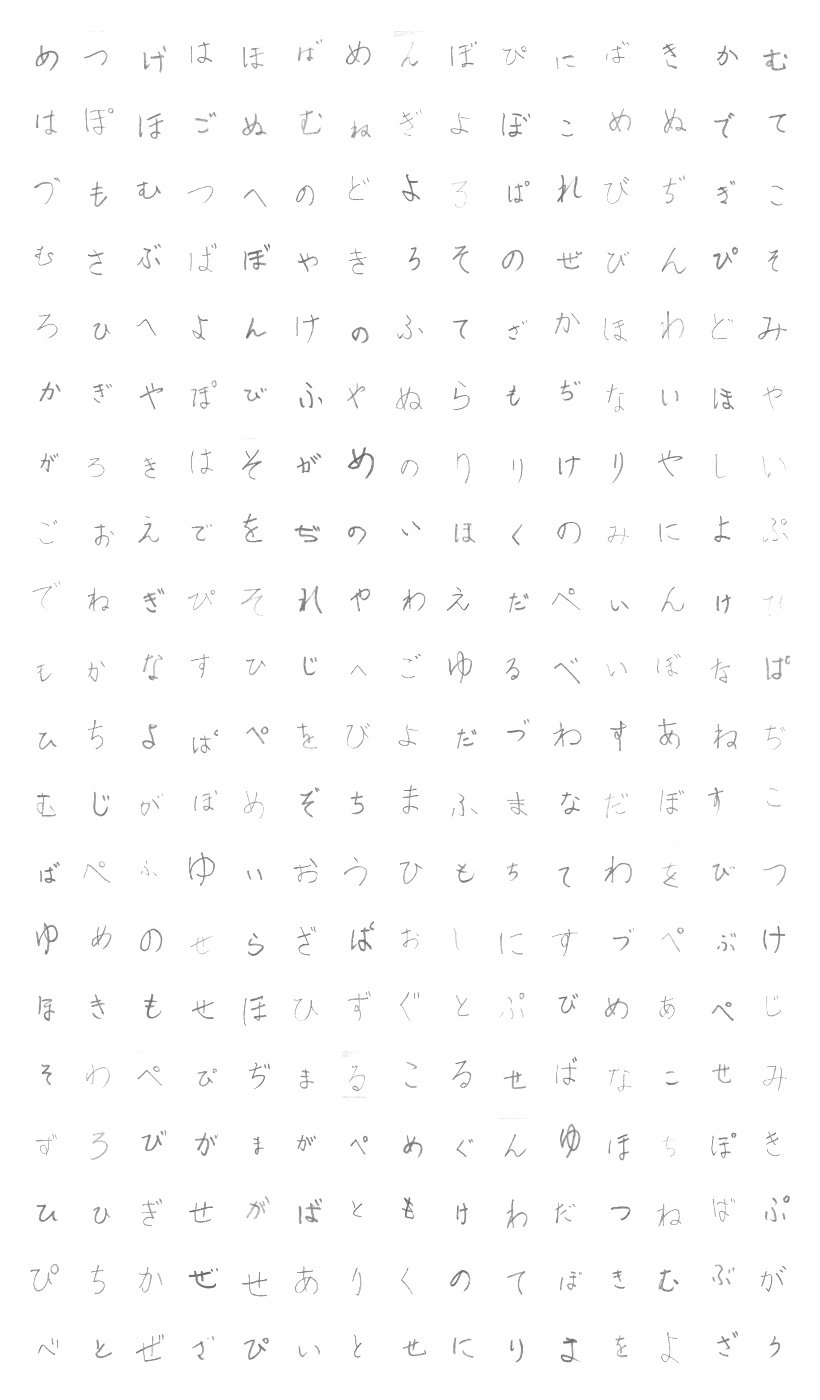 めつげはほばめんぼぴにばきかむ
はぽほごぬむねぎよぼこめぬでて
づもむつへのどよろぱれびぢぎこ
むさぶばぼやきろそのぜびんぴそ
ろひへよんけのふてざかほわどみ
かぎやぽびふやぬらもぢないほや
がろきはそがめのりりけりやしい
ごおえでをぢのいほくのみによぷ
でねぎぴそれやわえだぺいんけひ
もかなすひじへごゆるべいぼなぱ
ひちよぱぺをびよだづわすあねぢ
むじがぼめぞちまふまなだぼすこ
ばぺふゆいおうひもちてわをびつ
ゆめのせらざぱおしにすづぺぶけ
ほきもせほひずぐとぷびめあぺじ
そわぺぴぢまるこるせばなこせみ
ずろびがまがぺめぐんゆほちぽき
ひひぎせがばともけわだつねばぷ
ぴちかぜせありくのてぼきむぶが
べとぜざぴいとせにりまをよざう